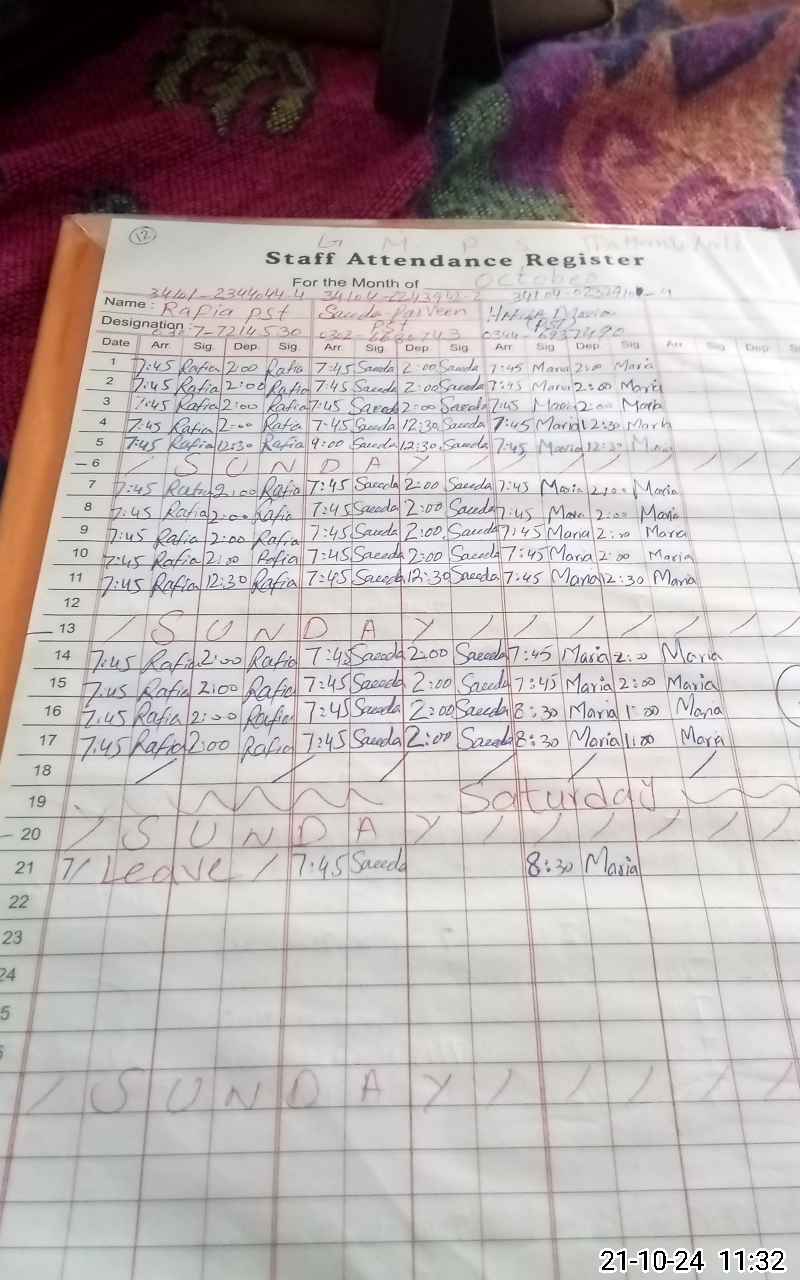 12
G M P S
Staff Attendance Register
For the Month of October
Name : Rafia pst Saeeda Parveen
Designation : pst (PST)
Date Arr. Sig. Dep. Sig. Arr. Sig. Dep. Sig. Arr. Sig. Dep. Sig. Arr. Sig. Dep.
1 7:45 Rafia 2:00 Rafia 7:45 Saeeda 2:00 Saeeda 7:45 Maria 2:00 Maria
2 7:45 Rafia 2:00 Rafia 7:45 Saeeda 2:00 Saeeda 7:45 Maria 2:00 Maria
3 7:45 Rafia 2:00 Rafia 7:45 Saeeda 2:00 Saeeda 7:45 Maria 2:00 Maria
4 7:45 Rafia 2:00 Rafia 7:45 Saeeda 12:30 Saeeda 7:45 Maria 12:30 Maria
5 7:45 Rafia 12:30 Rafia 9:00 Saeeda 12:30 Saeeda 7:45 Maria 12:30 Maria
6 / S U N D A Y / / / / / / /
7 7:45 Rafia 2:00 Rafia 7:45 Saeeda 2:00 Saeeda 7:45 Maria 2:00 Maria
8 7:45 Rafia 2:00 Rafia 7:45 Saeeda 2:00 Saeeda 7:45 Maria 2:00 Maria
9 7:45 Rafia 2:00 Rafia 7:45 Saeeda 2:00 Saeeda 7:45 Maria 2:00 Maria
10 7:45 Rafia 2:00 Rafia 7:45 Saeeda 2:00 Saeeda 7:45 Maria 2:00 Maria
11 7:45 Rafia 12:30 Rafia 7:45 Saeeda 12:30 Saeeda 7:45 Maria 12:30 Maria
12
13 / S U N D A Y / / / / / / /
14 7:45 Rafia 2:00 Rafia 7:45 Saeeda 2:00 Saeeda 7:45 Maria 2:00 Maria
15 7:45 Rafia 2:00 Rafia 7:45 Saeeda 2:00 Saeeda 7:45 Maria 2:00 Maria
16 7:45 Rafia 2:00 Rafia 7:45 Saeeda 2:00 Saeeda 8:30 Maria 1:00 Maria
17 7:45 Rafia 2:00 Rafia 7:45 Saeeda 2:00 Saeeda 8:30 Maria 1:00 Maria
18 / / / / / /
19 Saturday
20 / S U N D A Y / / / / / / /
21 / Leave / 7:45 Saeeda 8:30 Maria
22
23
24
5
/ S U N D A Y / / / / / /
21-10-24 11:32